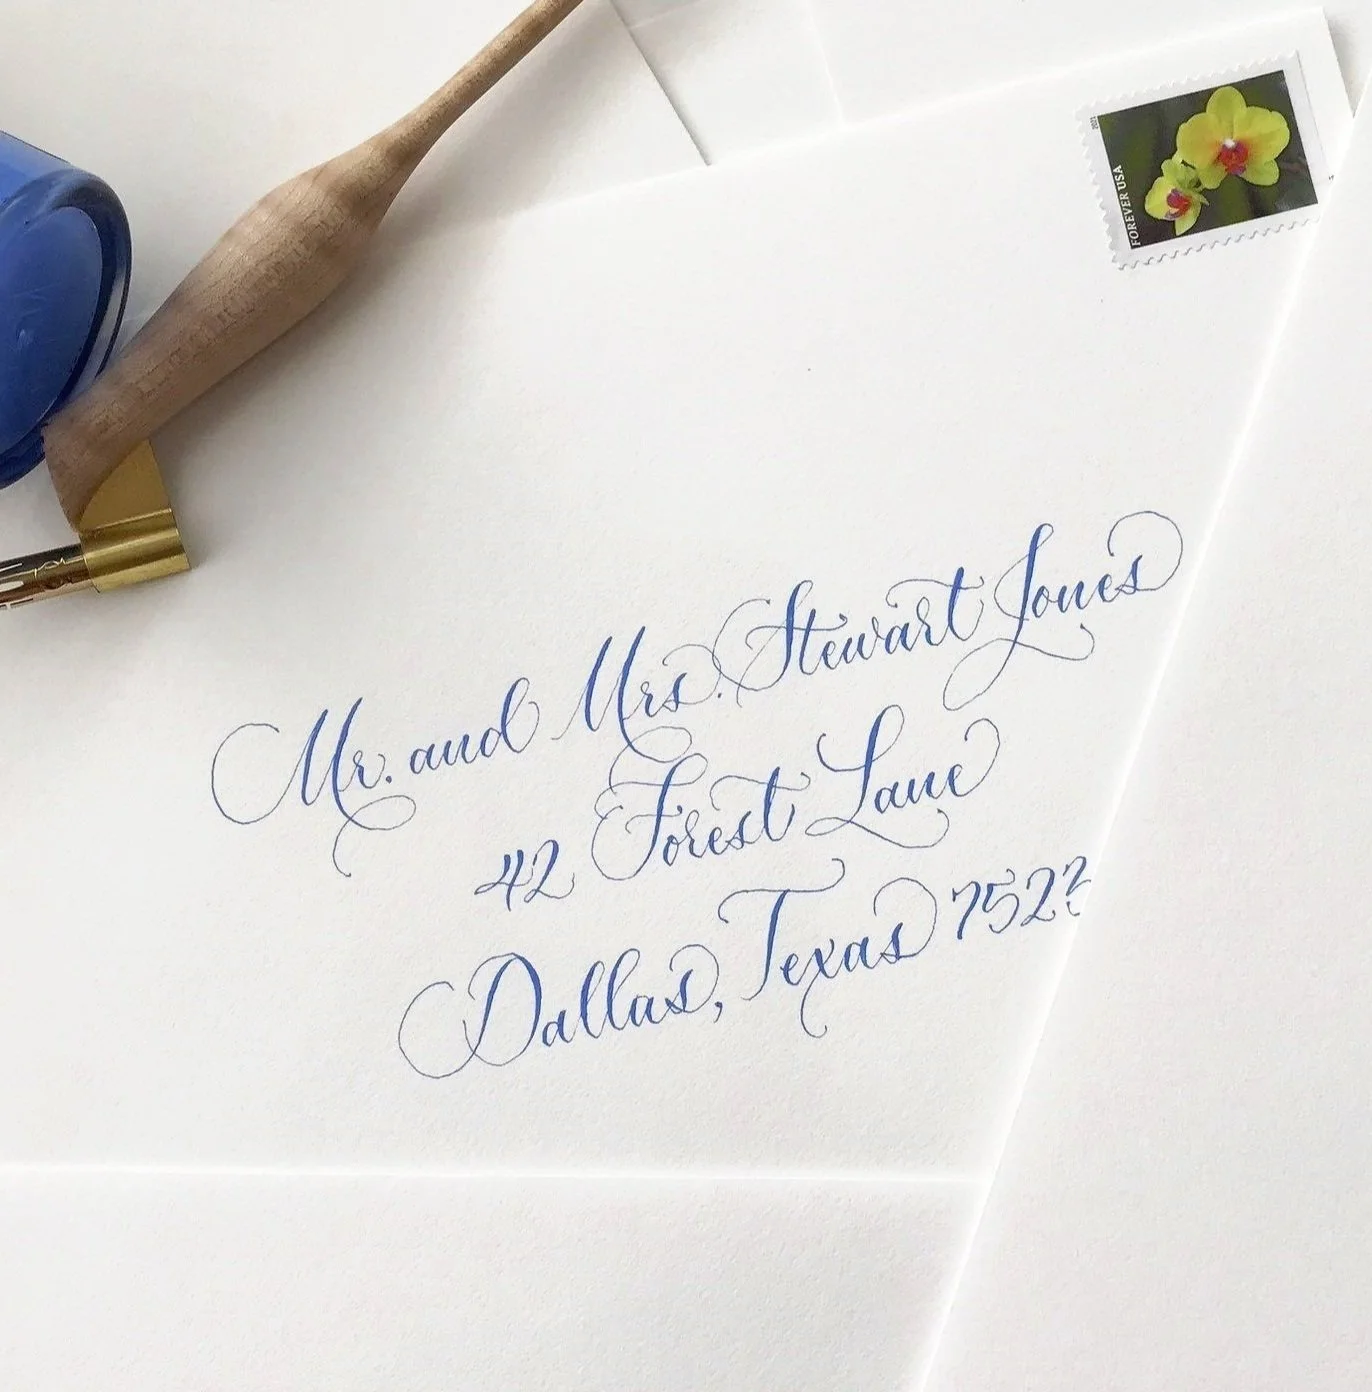 FOREVER USA
2021
Mr. and Mrs. Stewart Jones
42 Forest Lane
Dallas, Texas